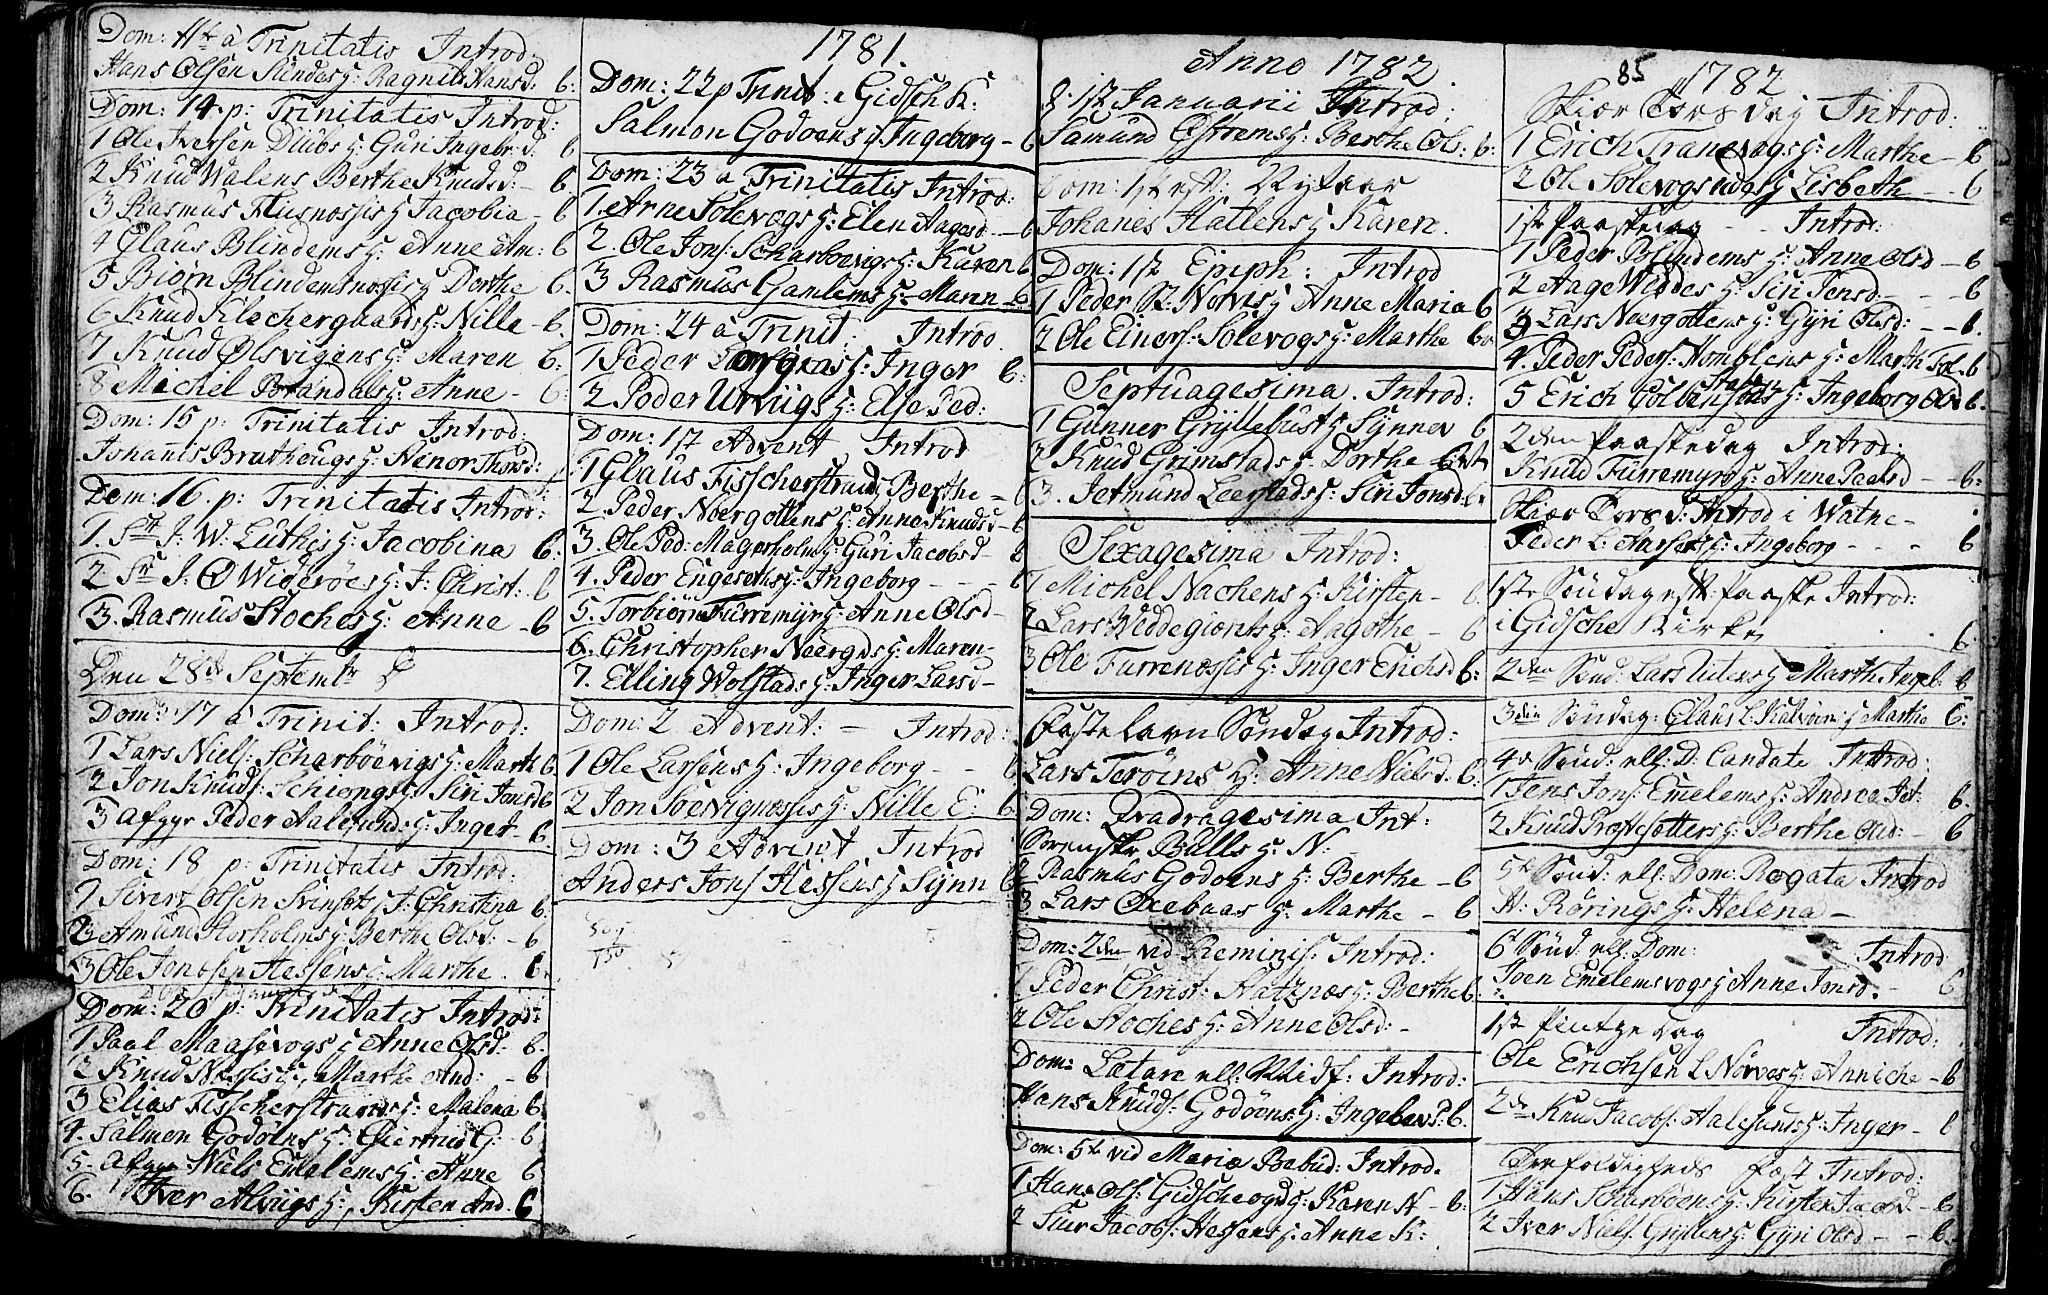 Dom: 11te à Trinitatis Introd:
Hans Olsen Sundes H: Ragnild Hansd: 6:
Dom: 14. p: Trinitatis Introd:
1 Ole Iversen Duubs H: Guri Ingebr: d: 6
2 Knud Walens Berthe Knudsd: - 6.
3 Rasmus Husnossis H Jacobia - 6
4 Claus Blindems H: Anne Am: 6
5 Biørn Blindemsnossis H Dorthe 6.
6 Knud Klochergaards H: Nille - 6.
7 Knud Ølsvigens H: Maren 6.
8 Michel Brandals H: Anne - 6:
Dom: 15 p: Trinitatis Introd:
Johanes Brathougs H: Henor Thorsd:
Dom: 16. p: Trinitatis Introd:
1. Sr J. W. Luthes H: Jacobina 6.
2 Sr J: Ø Widerøes H: J: Christ: 6
3. Rasmus Stoches H: Anne - 6
Den 28de Septembr
Dom: 17 à Trinit: Introd:
1 Lars Niels: Scharbøevigs H: Marth 6.
2 Jon Knuds: Schiongs H: Siri Jonsd 6
3 afgyr Peder Aalesund: H: Inger - 6.
Dom: 18 p: Trinitatis Introd:
1 Sivert Olsen Svinsets J: Christina 6.
2 Amund Storholms H: Berthe Olsd: - 6
3 Ole Jonssen Hessens H: Marthe. 6.
Dom: 20 p: Trinitatis Introd:
1 Paal Maasevogs H Anne Olsd: 6.
2 Knud Nessis H: Marthe And: - 6
3 Elias Fisscherstrands H: Malena 6.
4. Salmon Godøens H: Giertrud G: - 6
5. afgyr Niels Emelems H: Anne 6
6. Iver Alvigs H: Kirsten And. 6
1781.
Dom: 22 p Trinit: i Gidsch K:
Salmon Godoens H Ingeborg - 6
Dom: 23 a Trinitatis Introd:
1. Arne Solevogs H: Elen Aagesd - 6
2. Ole Jons: Scharboevigs H: Karen 6
3 Rasmus Gamlems H: Maren - 6
Dom: 24 à Trinit: Introd
1 Peder H: Inger 6:
2 Peder Urviigs H: Else Ped:
Dom: 1st Advent Introd
1 Claus Fisscherstrand H Berthe - 6
2 Peder Noergottens H: Anne Knudsd - 6
3. Ole Ped: Magerholm H: Guri Jacobsd - 6
4. Peder Engeseths H: Ingeborg - - - 6
5. Torbiørn Furremyr H: Anne Olsd -
6. Christopher Noergds H: Maren -
7. Elling Wolstads H: Inger Larsd -
Dom: 2 Advent: - Introd:
1 Ole Larsens H: Ingeborg - - 6
2 Jon Soevignossis H: Nille E: 6
Dom: 3 Advent Introd
Anders Jons Hessens H Synn 6
Anno 1782.
1st Januarii Introd:
Samund Østrems H: Berthe Ols: 6:
Dom: 1st eft: Nytaar
Johanes Hatlens H Karen.
Dom: 1st Epiph: Introd
1 Peder St: Norvis H Anne Maria 6
2 Ole Einers: Solevogs H: Marthe 6
Septuagesima. Introd:
1 Gunner Gryllebust H Synnev 6
2 Knud Grimstads H: Dorthe
3. Jetmund Leerstads H: Siri Jonsd. 6.
Sexagesima Introd:
1 Michel Nachens H: Kirsten - 6.
2 Lars Weddegierets H: Aagothe - 6
3 Ole Furrenessis H: Inger Erichsd 6:
Fastelavn Søndag Introd:
Lars Terøins H: Anne Nielsd: 6:
Dom: Qvadragesima Int:
Sorenskr Bulls H: N:
2 Rasmus Godoens H: Berthe - 6
3 Lars Oxebaas H: Marthe - 6
Dom: 2den vid Reminis: Introd:
1 Peder Christ: Katznæs H: Berthe 6.
2 Ole Stoches H: Anne Olsd: -
Dom: Lætare ell: Midf: Introd:
Hans Knuds: Godøens H: Ingeb: 6.
Dom: 5te vid Mariæ Bebud: Introd.
1 Hans Ols: Gidscheogd H: Karen N - 6:
2 Siur Jacobs: Hessens H: Anne K:
85 1782
Skiær Torsdag Introd:
1 Erich Tranevogs H: Marthe - 6
2 Ole Solevogs H Lisbeth - - 6
1st Paaskedag - - Introd:
1 Peder Blindems H: Anne Olsd - 6
2 Aage Weddes H: Siri Jensd. - - - 6
3 Lars Noergottens H: Gyri Olsd: - - 6.
4. Peder Peders: Humblens H: Marth 6
5 Erich Colbens H: Ingeborg 6.
2den Paaskedag Introd:
Knud Furremyrs H: Anne Paalsd - - 6:
Skiær Torsd: Introd i Watne -
Peder L: Aarset H: Ingeborg - - - 6
1ste Søndag eft: Paaske Introd:
i Gidsche Kirke 6.
2den Sønd: Lars H Marth 6.
3die Søndag: Claus L: Kalvøen H Marthe 6:
4de Sønd: ell: D: Cantate Introd:
1 Jens Jons: Emelems H: Andrea Jet: 6.
2 Knud Præstesetters H: Berthe Olsd: - 6
5te Sønd: ell: Dom: Rogata Introd
H: Rørings H: Helena -
6te Sønd: ell: Dom: Introd
Soen Emelemsvogs H Anne Jonsd. - 6
1st Pintzedag Introd:
Ole Erichsen L Nørves H: Anniche - 6
2de Knud Jacobs: Aalesunds H: Inger - 6
Trefoldigheds fest Introd:
1 Hans Scharbøens H: Kirsten Jacobd - 6
2 Iver Niels: Gryttens H: Gyri Olsd - - 6.